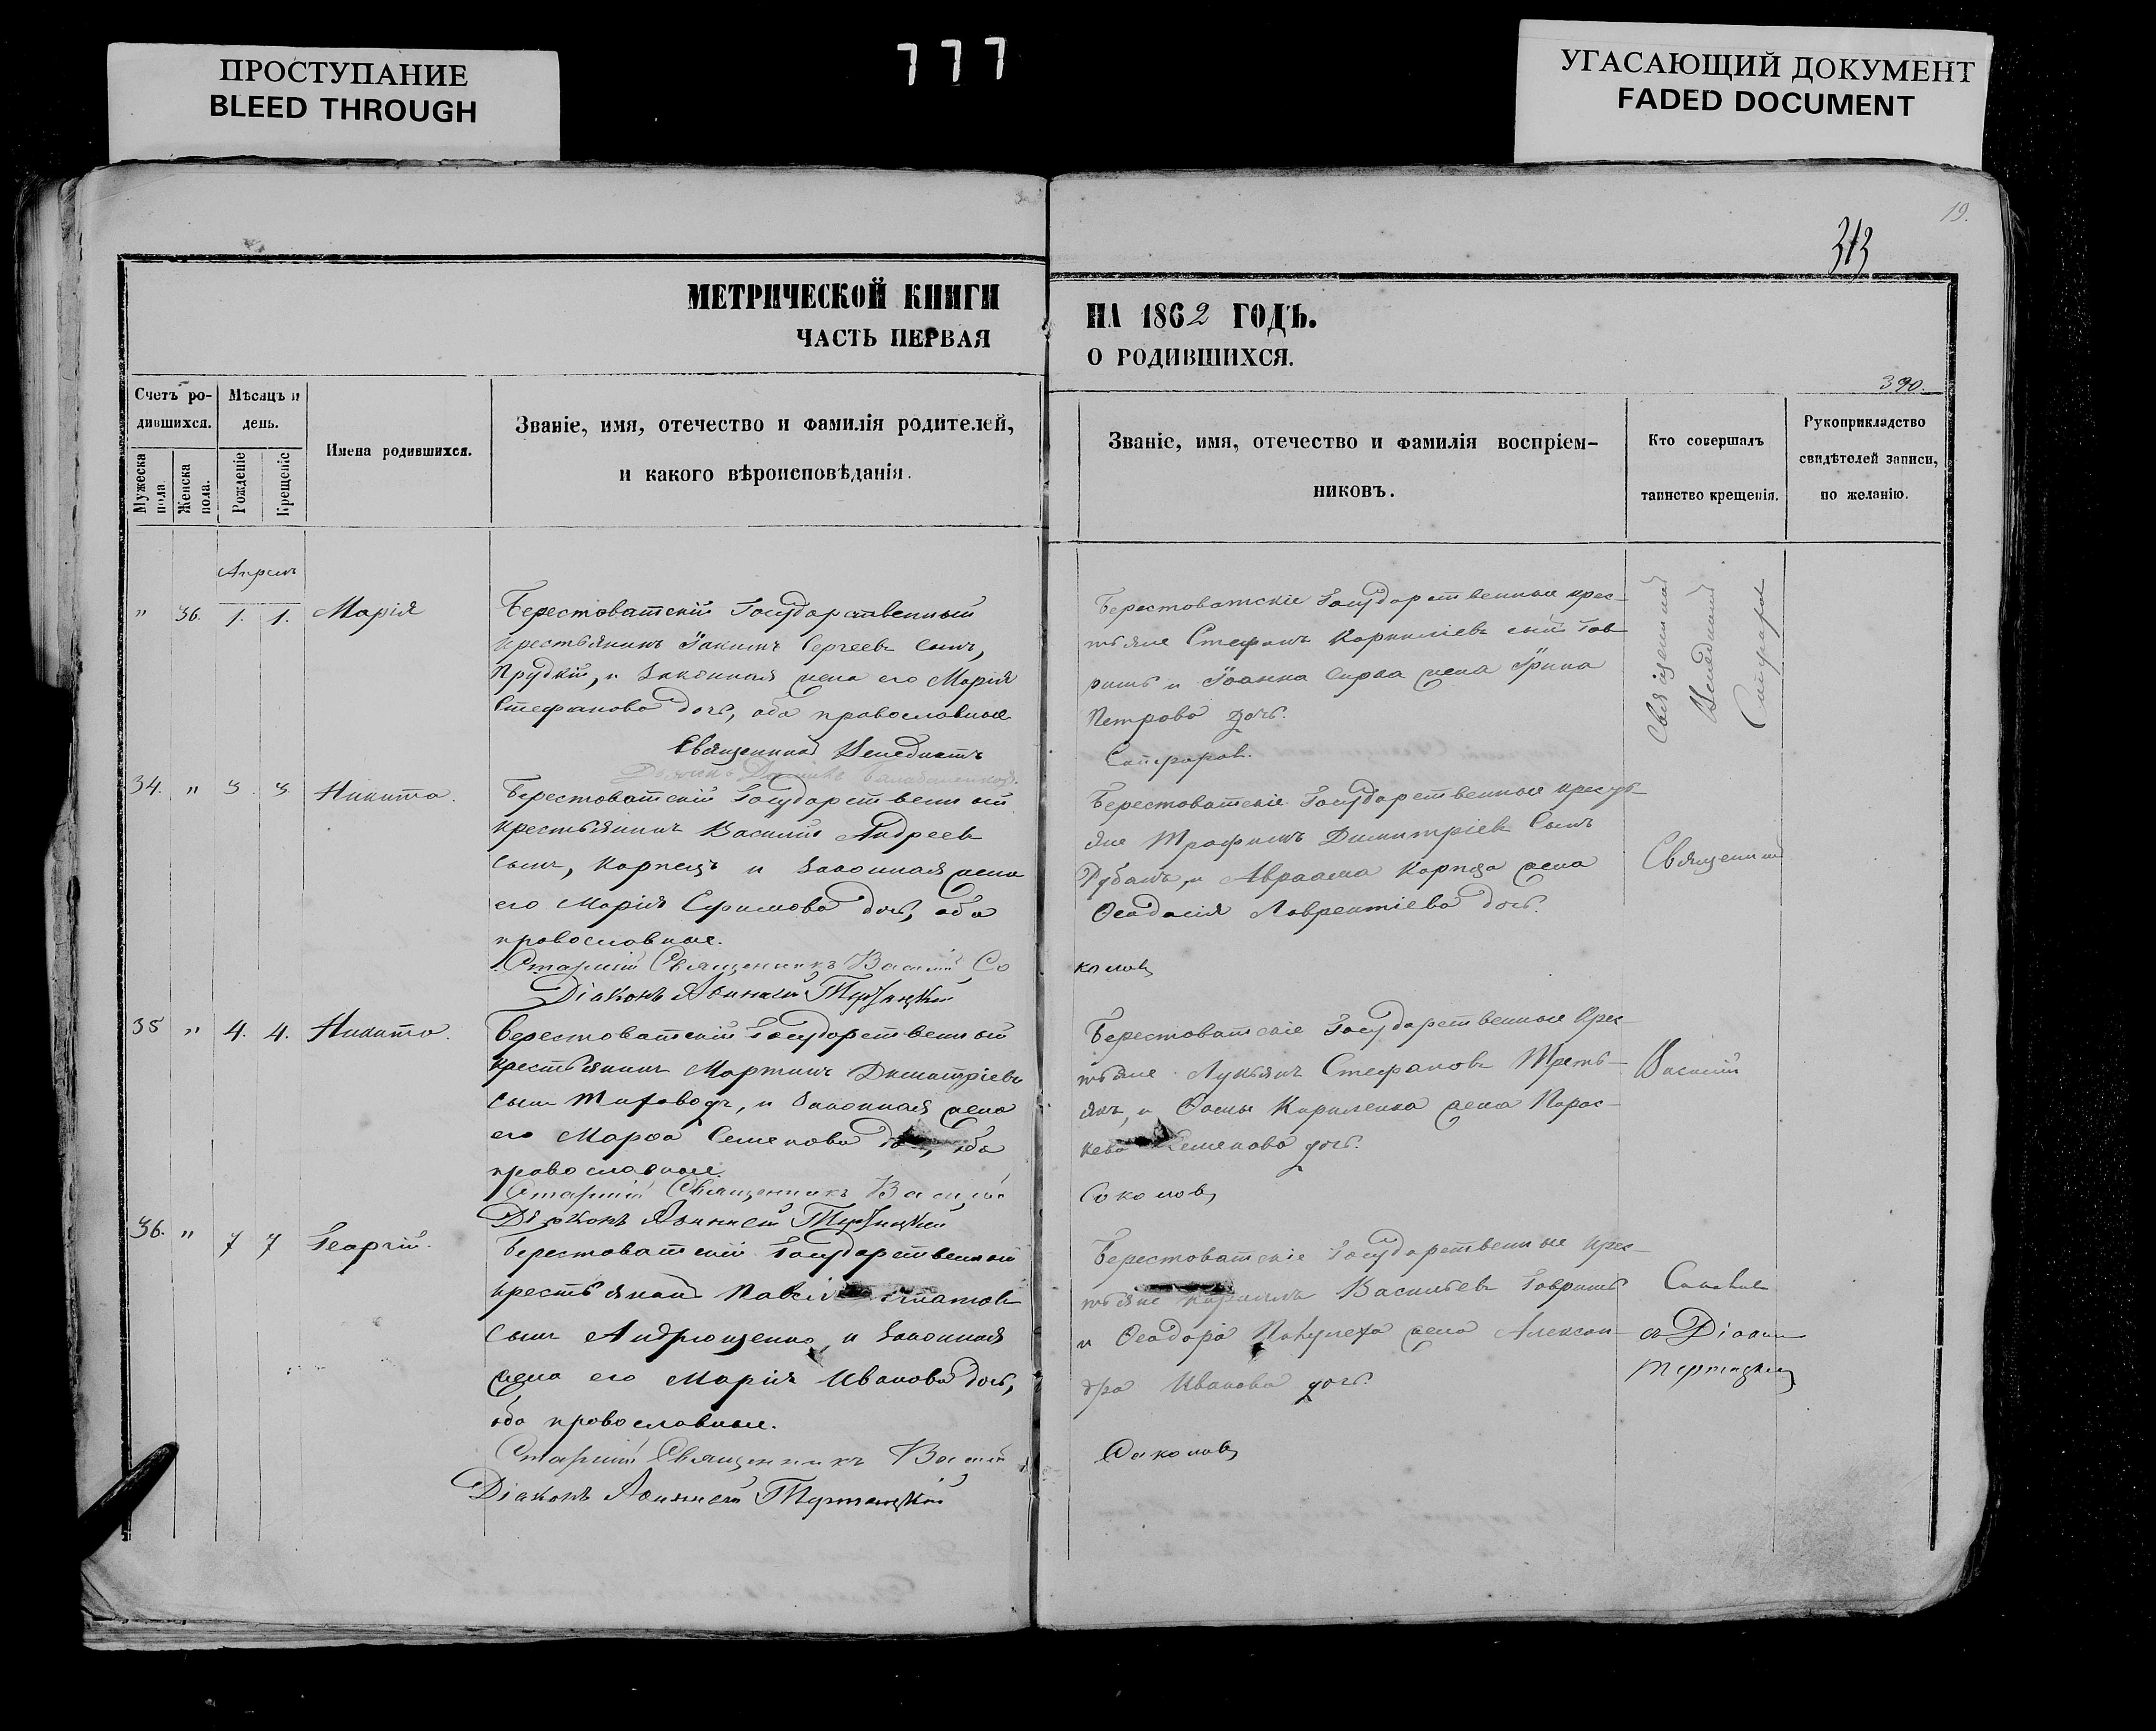 ПРОСТУПАНИЕ
BLEED THROUGH
777
УГАСАЮЩИЙ ДОКУМЕНТ
FADED DOCUMENT
19.
313
МЕТРИЧЕСКОЙ КНИГИ
ЧАСТЬ ПЕРВАЯ
НА 1862 ГОДЪ.
О РОДИВШИХСЯ.
390.
Счетъ ро-
дившихся.
Мужеска пола
Женска пола.
Мѣсяцъ и
день.
Рожденіе
Крещеніе
Имена родившихся.
Званіе, имя, отечество и фамилія родителей,
и какого вѣроисповѣданія.
Званіе, имя, отечество и фамилія воспріем-
никовъ.
Кто совершалъ
таинство крещенія.
Рукоприкладство
свидѣтелей записи,
по желанію.
Апрель
" 36. 1. 1. Марія
Берестоватскій Государственный
крестьянинъ Іакимъ Сергеевъ сынъ,
Прудкій, и законная жена его Марія
Стефанова дочь, оба православные
Священникъ Венедиктъ
Берестоватскіе Государственные крес-
тьяне Стефанъ Корниліевъ сынъ Гав
ришъ и Іоанна жена Ирина
Петрова дочь.
Священникъ
Венедиктъ
34. " 3. 3. Никита.
Берестоватскій Государственный
крестьянинъ Василій Андреевъ
сынъ, Корнецъ и законная жена
его Марія Ефимова дочь, оба
православные.
Старшій Священникъ Василій Со
Діаконъ
Берестоватскіе Государственные кресть-
яне Трофимъ Димитріевъ сынъ
Рубанъ, и Авраама Корнца жена
Феодосія Лаврентіева дочь.
коловъ
Священникъ
35 " 4. 4. Никита.
Берестоватскій Государственный
крестьянинъ Мартинъ Димитріевъ
сынъ и законная жена
его Марфа Семенова оба
православные.
Старшій Священникъ Василій
Діаконъ
Берестоватскіе Государственные Крес
тьяне Лукьянъ Стефановъ Треть-
якъ, и Фомы Кириленка жена Парас-
кева Семенова дочь.
Соколовъ
Василій
36. " 7 7 Георгій.
Берестоватскій Государственный
крестьянинъ
сынъ Андрющенко, и законная
жена его Марія Иванова дочь,
оба православные.
Старшій Священникъ Василій
Діаконъ
Берестоватскіе Государственные крес-
тьяне Кириллъ Васильевъ Гавришъ
и Феодора жена Алексан-
дра Иванова дочь.
Соколовъ
съ Діакон